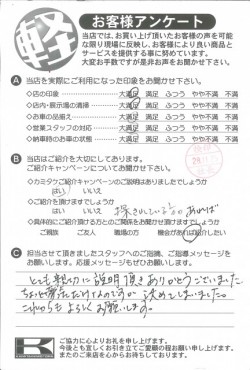 軽
お客様アンケート
当店では、お買い上げ頂いたお客様の声を可能
な限り現場に反映し、お客様により良い商品と
サービスを提供する事に努めています。
大変お手数ですが是非お声をお聞かせ下さい。
A 当店を実際にご利用になった印象をお聞かせ下さい。
◇店の印象 大満足 満足 ふつう やや不満 不満
◇店内・展示場の清掃 大満足 満足 ふつう やや不満 不満
◇お車の品揃え 大満足 満足 ふつう やや不満 不満
◇営業スタッフの対応 大満足 満足 ふつう やや不満 不満
◇納車時のお車の状態 大満足 満足 ふつう やや不満 不満
B 当店はご紹介を大切にしております。
ご紹介キャンペーンについてお聞かせ下さい。
◇カミタケご紹介キャンペーンのご説明はありましたでしょうか
はい いいえ
◇ご紹介を頂けますでしょうか
はい いいえ
あれば
◇具体的にご紹介頂ける方とのご関係をお聞かせ頂けますでしょうか
ご親族 ご友人 職場の方 機会があれば紹介したい
C 担当させて頂きましたスタッフへのご指摘、ご指導メッセージを
お願いします。応援メッセージもぜひお願いします。
とても親切に説明頂きありがとうございました。
決めてしまいました。
これからもよろしくお願いします。
K
ご協力に心よりお礼を申し上げます。
今後とも宜しくお引き立てご愛顧の程お願い申し上げます。
またのご来店を心からお待ちしております。